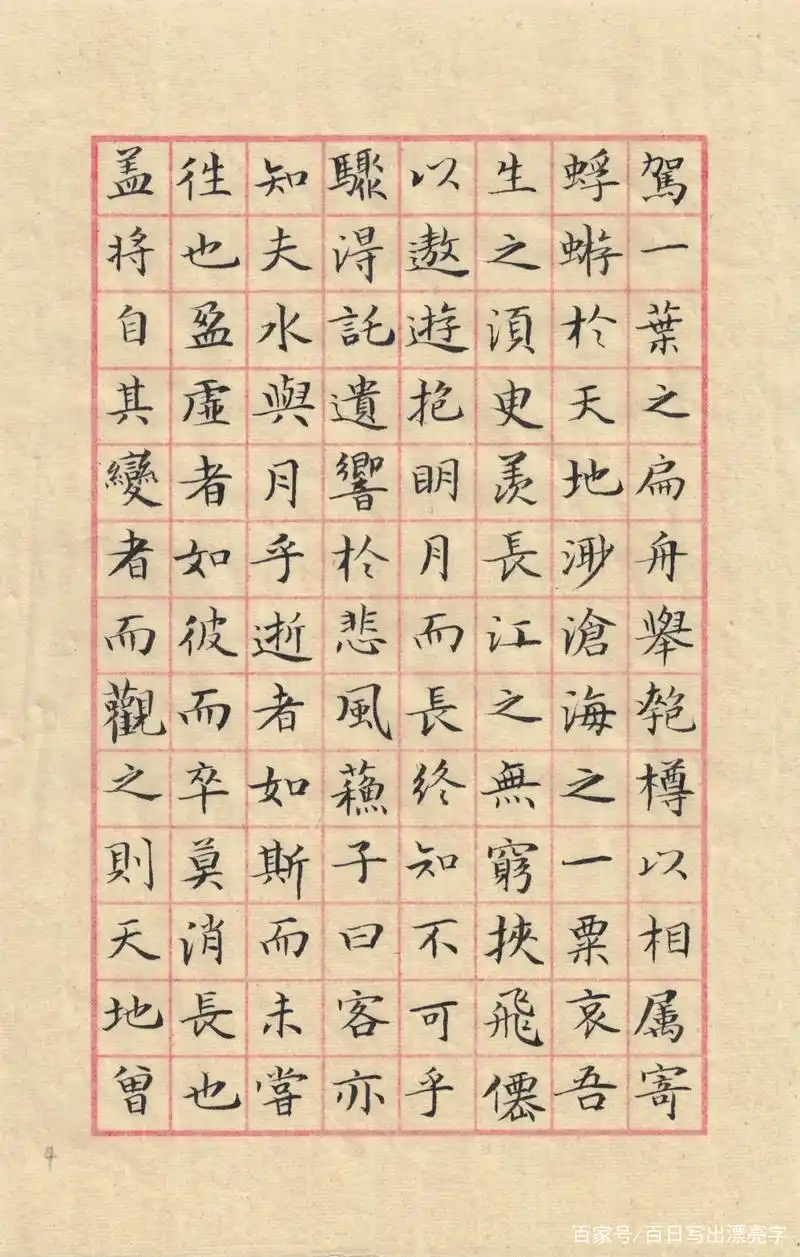 駕一葉之扁舟舉匏樽以相属寄
蜉蝣於天地渺滄海之一粟哀吾
生之湏臾羨長江之無窮挾飛僊
以遨遊抱明月而長終知不可乎
驟得託遺響於悲風蘓子曰客亦
知夫水與月乎逝者如斯而未嘗
徃也盈虛者如彼而卒莫消長也
盖將自其變者而觀之則天地曾
4
百家号/百日写出漂亮字